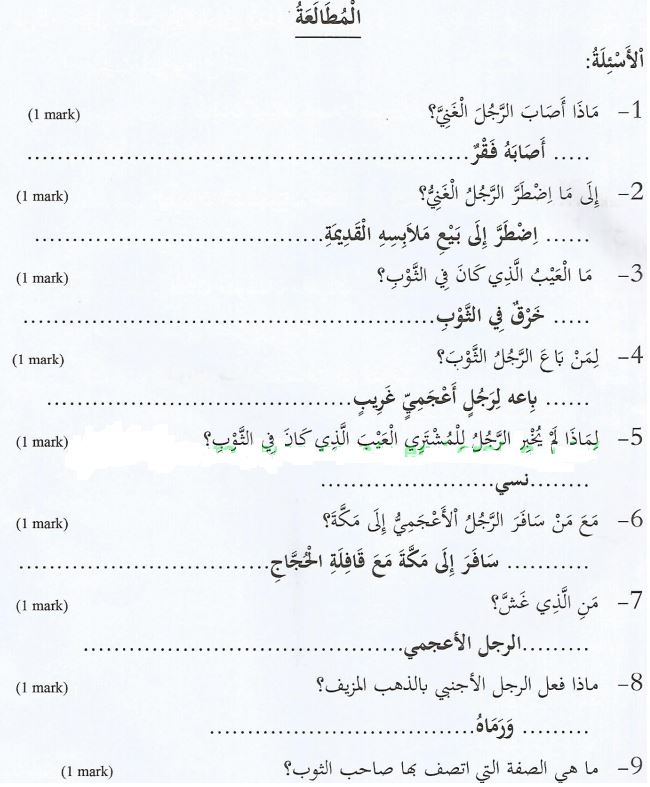 الْمُطَالَعَةُ
اْلأَسْئِلَةُ:
1- مَاذَا أَصَابَ الرَّجُلَ الْغَنِيَّ؟ (1 mark)
..... أَصَابَهُ فَقْرٌ..........................................................
2- إِلَى مَا اِضْطَرَّ الرَّجُلُ الْغَنِيُّ؟ (1 mark)
...... اِضْطَرَّ إِلَى بَيْعِ مَلاَبِسِهِ الْقَدِيمَةِ......................................
3- مَا الْعَيْبُ الَّذِي كَانَ فِي الثَّوْبِ؟ (1 mark)
..... خَرْقٌ فِي الثَّوْبِ......................................................
4- لِمَنْ بَاعَ الرَّجُلُ الثَّوْبَ؟ (1 mark)
...... بِاعه لِرَجُلٍ أَعْجَمِيٍّ غَرِيبٍ........................................
5- لِمَاذَا لَمْ يُخْبِرِ الرَّجُلُ لِلْمُشْتَرِي الْعَيْبَ الَّذِي كَانَ فِي الثَّوْبِ؟ (1 mark)
........نسي...........................
6- مَعَ مَنْ سَافَرَ الرَّجُلُ اْلأَعْجَمِيُّ إِلَى مَكَّةَ؟ (1 mark)
........... سَافَرَ إِلَى مَكَّةَ مَعَ قَافِلَةِ الْحُجَّاجِ.................................
7- مَنِ الَّذِي غَشَّ؟ (1 mark)
.........الرجل الأعجمي..........................................
8- ماذا فعل الرجل الأجنبي بالذهب المزيف؟ (1 mark)
......... وَرَمَاهُ...................................
9- ما هي الصفة التي اتصف بها صاحب الثوب؟ (1 mark)